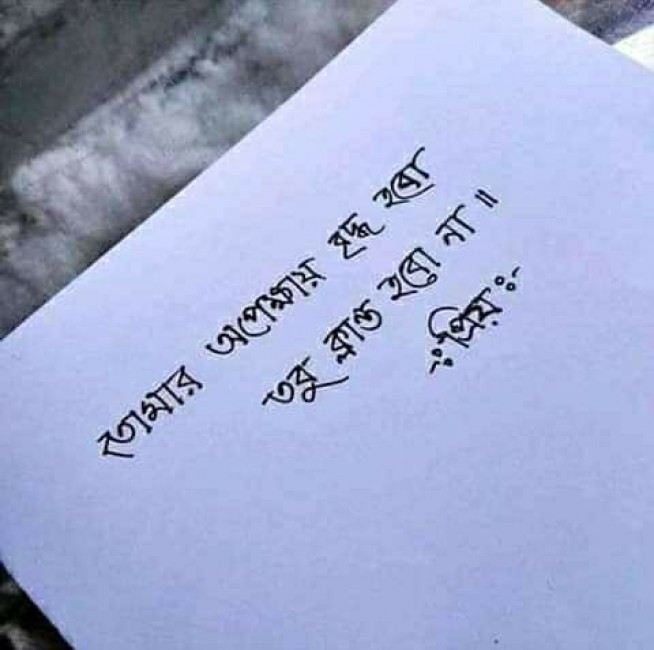 তোমার অপেক্ষায় বৃদ্ধ হবো
তবু ক্লান্ত হবো না॥
ঃপ্রিয়ঃ